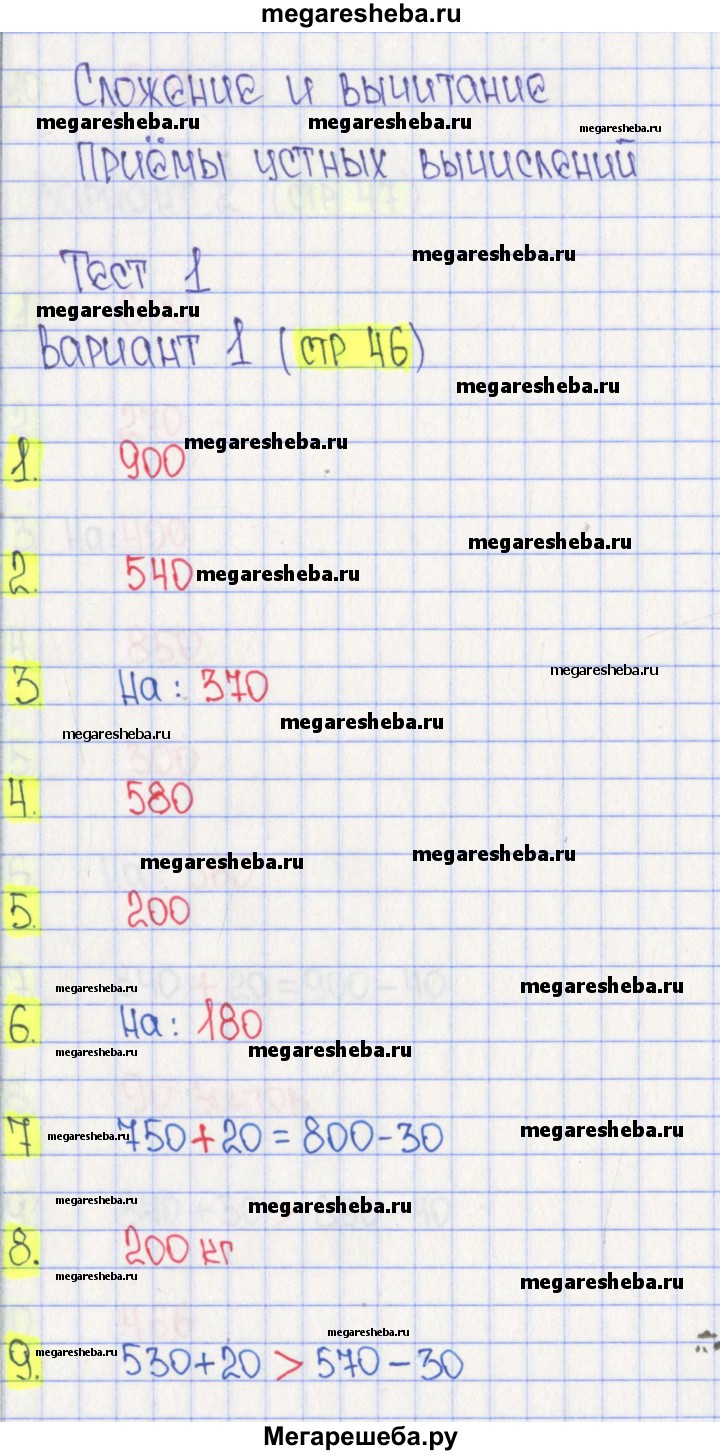 megaresheba.ru
Сложение и вычитание
megaresheba.ru megaresheba.ru megaresheba.ru
Приёмы устных вычислений
megaresheba.ru
Тест 1
megaresheba.ru
Вариант 1 (стр 46)
megaresheba.ru
1. 900 megaresheba.ru
megaresheba.ru
2. 540 megaresheba.ru
megaresheba.ru
3 На: 370
megaresheba.ru
megaresheba.ru
4. 580
megaresheba.ru megaresheba.ru
5. 200
megaresheba.ru megaresheba.ru
6. На: 180
megaresheba.ru megaresheba.ru
7 megaresheba.ru 750+20=800-30 megaresheba.ru
megaresheba.ru megaresheba.ru
8. 200 кг
megaresheba.ru megaresheba.ru
megaresheba.ru
9. megaresheba.ru 530+20 > 570-30
Мегарешеба.ру